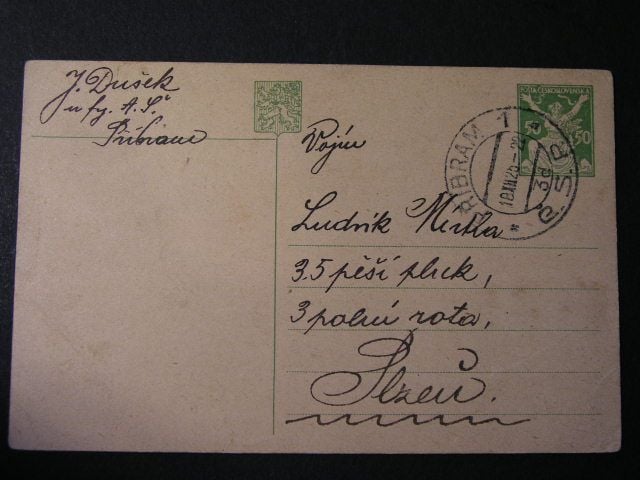 J. Dušek
u fy. A. S.
Příbram
POŠTA ČESKOSLOVENSKÁ
50
PŘÍBRAM 1
18.XII.25
ČSR
3d
Vojín
Ludvík
35 pěší pluk,
3 polní rota,
Plzeň.